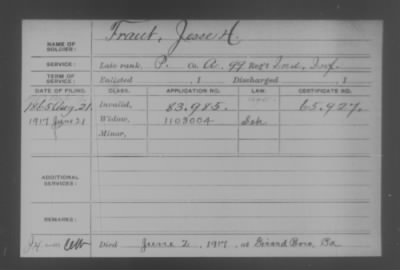 NAME OF SOLDIER: Traut, Jesse H.
SERVICE: Late rank, P. Co. A, 99 Reg't Ind. Inf.
TERM OF SERVICE: Enlisted , 1 Discharged , 1
DATE OF FILING. CLASS. APPLICATION NO. LAW. CERTIFICATE NO.
1865 Aug. 21 Invalid, 83.985. 65.927.
1917 June 21 Widow, 1103004
Minor,
ADDITIONAL SERVICES:
REMARKS:
Died June 2, 1917, at Girard Boro, Pa